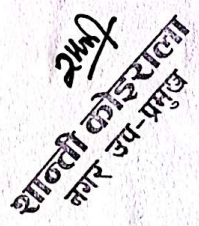 शान्ती कोइराला
नगर उप-प्रमुख